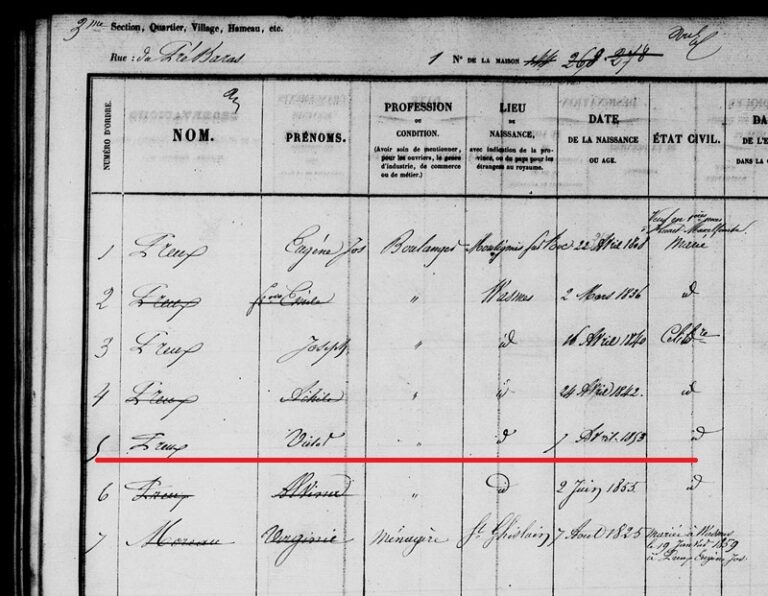 3me Section, Quartier, Village, Hameau, etc.
Rue : du Pré Baras 1 No DE LA MAISON 268 278
NUMÉRO D'ORDRE.
NOM.
PRÉNOMS.
PROFESSION
OU
CONDITION.
(Avoir soin de mentionner,
pour les ouvriers, le genre
d'industrie, de commerce
ou de métier.)
LIEU
DE
NAISSANCE,
avec indication de la pro-
vince, ou du pays pour les
étrangers au royaume.
DATE
DE LA NAISSANCE
OU AGE.
ÉTAT CIVIL.
DA
DE L'E
DANS LA
1 Dreux Eugène Jos Boulanger 22 Avril Marié
2 Dreux " Wasmes 2 Mars 1836 id
3 Dreux Joseph " id 16 Avril 1840 Célibre
4 Dreux Achile " id 24 Avril 1842. id
5 Dreux Victor " id 7 Avril 1853 id
6 Dreux " id 2 Juin 1855 id
7 Moreau Virginie Ménagère St Ghislain 7 Aout 1825 mariée à Wasmes
le 19 Janvier 1859
à Dreux Eugène Jos.